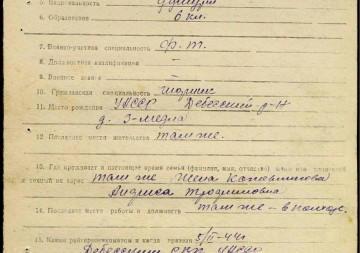 5. Национальность удмурт
6. Образование 6 кл.
7. Военно-учетная специальность
8. Должностная квалификация –
9. Военное звание –
10. Гражданская специальность
11. Место рождения УАССР Дебесский р-н
д. З-Медла
12. Постоянное место жительства там же.
13. Где проживает в настоящее время семья (фамилия, имя, отчество)
и точный их адрес там же жена
Трофимовна
14. Последнее место работы и должность там же – в колхозе.
15. Каким райгорвоенкоматом и когда призван 5/II-44г
Дебесским РВК УАССР